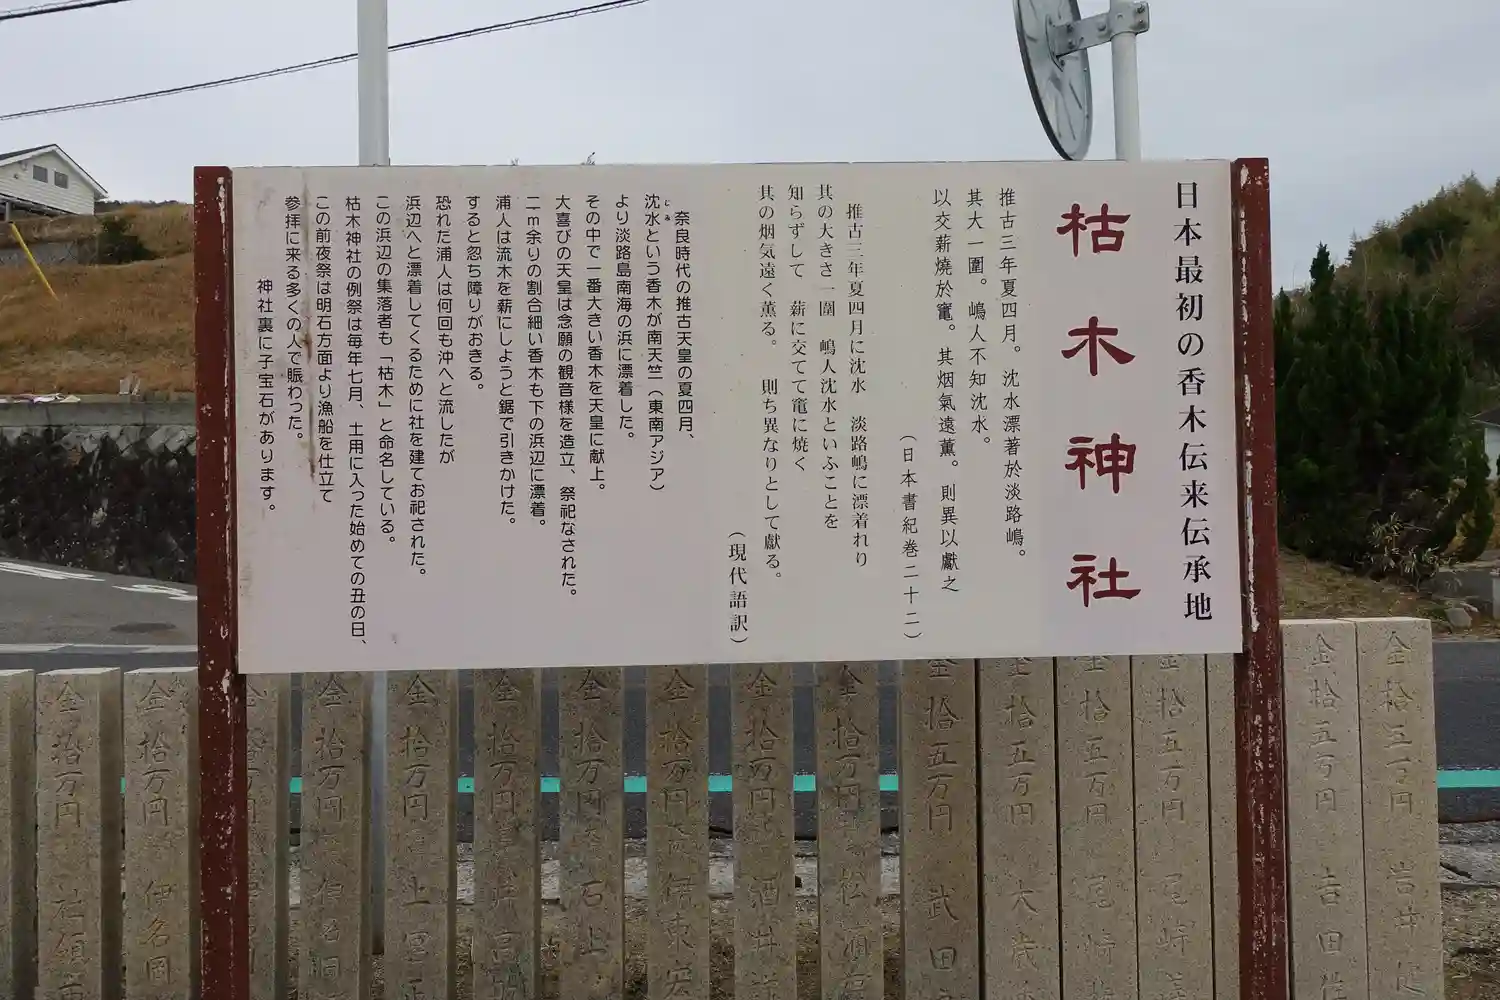 日本最初の香木伝来伝承地
枯木神社
推古三年夏四月。沈水漂著於淡路嶋。
其大一圍。嶋人不知沈水。
以交薪燒於竃。其烟氣遠薫。則異以獻之
(日本書紀巻二十二)
推古三年夏四月に沈水 淡路嶋に漂着れり
其の大きさ一圍 嶋人沈水といふことを
知らずして 薪に交てて竃に焼く
其の烟気遠く薫る。 則ち異なりとして献る。
(現代語訳)
奈良時代の推古天皇の夏四月、
沈水という香木が南天竺(東南アジア)
より淡路島南海の浜に漂着した。
その中で一番大きい香木を天皇に献上。
大喜びの天皇は念願の観音様を造立、祭祀なされた。
二m余りの割合細い香木も下の浜辺に漂着。
浦人は流木を薪にしようと鋸で引きかけた。
すると忽ち障りがおきる。
恐れた浦人は何回も沖へと流したが
浜辺へと漂着してくるために社を建てお祀された。
この浜辺の集落者も「枯木」と命名している。
枯木神社の例祭は毎年七月、土用に入った始めての丑の日、
この前夜祭は明石方面より漁船を仕立て
参拝に来る多くの人で賑わった。
神社裏に子宝石があります。
金拾三万円 岩井
金拾五万円 吉田
金拾五万円 尾崎
金拾五万円 尾崎
金拾五万円 大歳
金拾五万円 武田
金拾万円 松浦
金拾万円 酒井
金拾万円 伊東宏
金拾万円 石上
金拾万円 高
金拾万円 上宮
金拾万円
金拾万円 伊名岡
金拾万円 社領